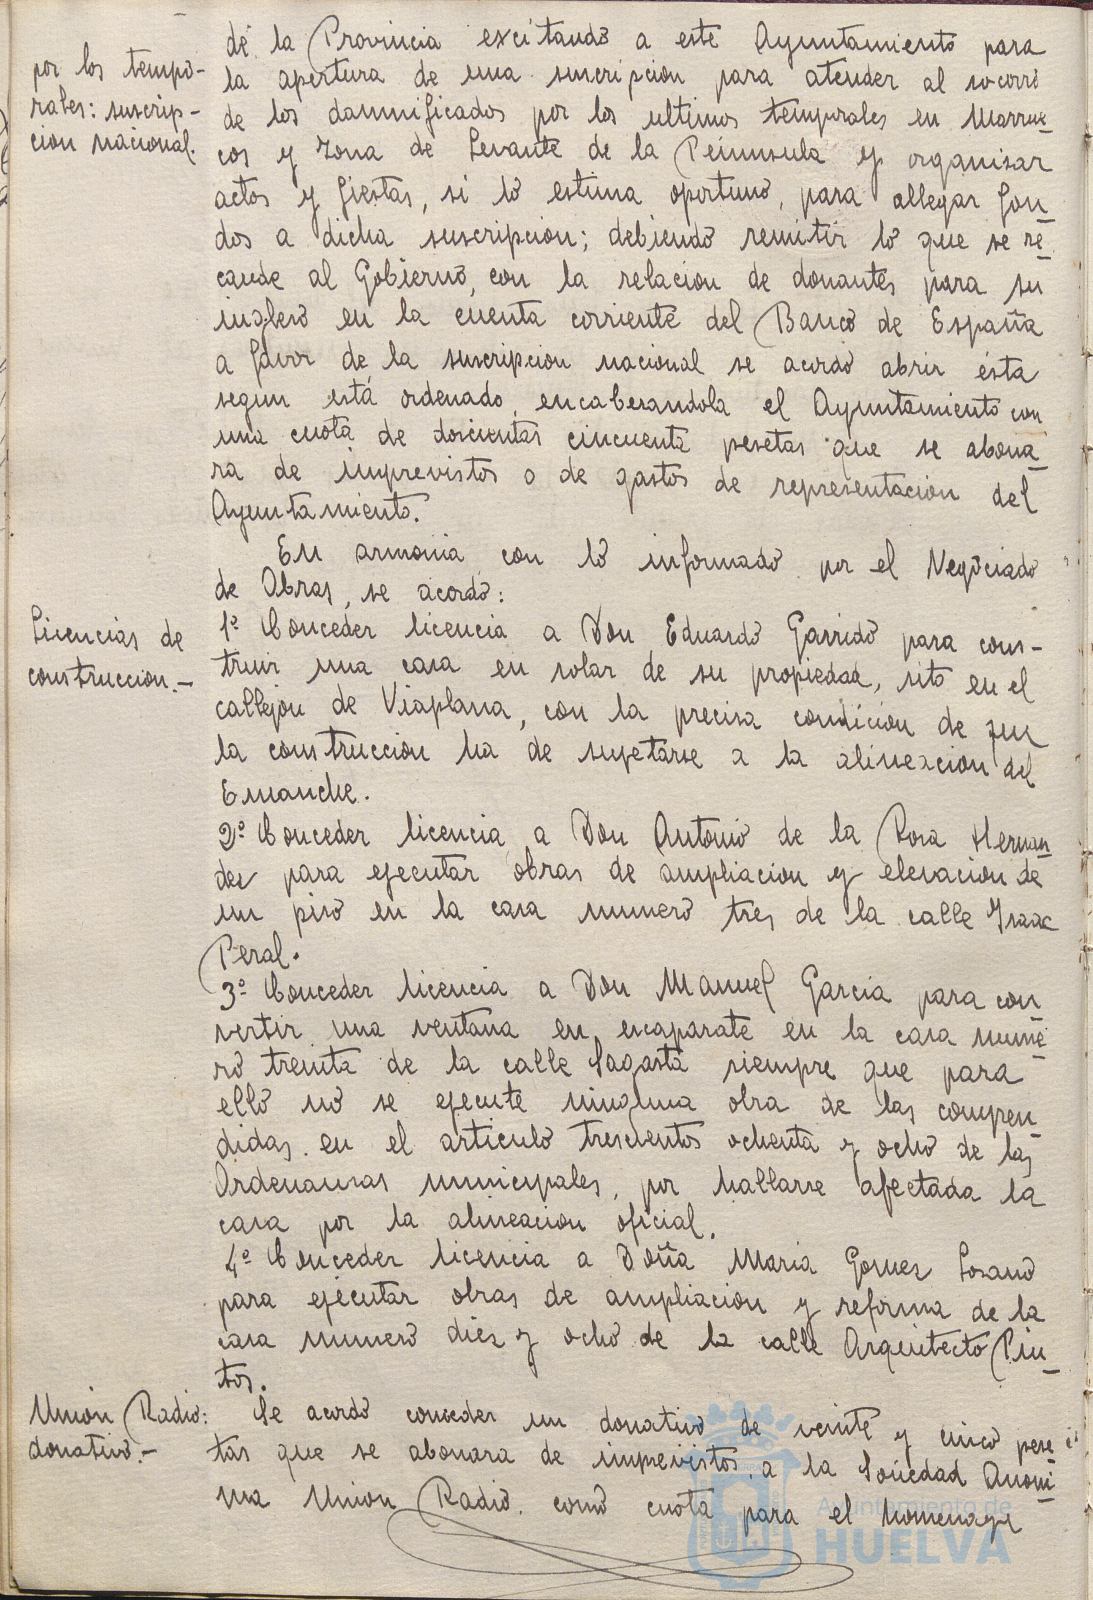 de la Provincia excitando a este Ayuntamiento para
por los tempo-
rales: suscrip-
cion nacional.
la apertura de una suscripcion para atender al socorro
de los damnificados por los ultimos temporales en Marrue-
cos y zona de Levante de la Peninsula y organizar
actos y fiestas, si lo estima oportuno, para allegar fon-
dos a dicha suscripcion; debiendo remitir lo que se re-
caude al Gobierno, con la relacion de donantes para su
ingreso en la cuenta corriente del Banco de España
a favor de la suscripcion nacional se acordó abrir ésta
segun está ordenado, encabezandola el Ayuntamiento con
una cuota de doscientas cincuenta pesetas que se abona-
ra de imprevistos o de gastos de representacion del
Ayuntamiento.
En armonia con lo informado por el Negociado
de Obras, se acordó:
Licencias de
construccion.-
1º Conceder licencia a Don Eduardo Garrido para cons-
truir una casa en solar de su propiedad, sito en el
callejon de Viaplana, con la precisa condicion de que
la construccion ha de sujetarse a la alineacion del
Ensanche.
2º Conceder licencia a Don Antonio de la Rosa Hernan-
dez para ejecutar obras de ampliacion y elevacion de
un piso en la casa numero tres de la calle Isaac
Peral.
3º Conceder licencia a Don Manuel Garcia para con-
vertir una ventana en escaparate en la casa nume-
ro treinta de la calle Sagasta siempre que para
ello no se ejecute ninguna obra de las compren-
didas en el articulo trescientos ochenta y ocho de las
Ordenanzas municipales, por hallarse afectada la
casa por la alineacion oficial.
4º Conceder licencia a Doña Maria Gomez Lozano
para ejecutar obras de ampliacion y reforma de la
casa numero diez y ocho de la calle Arquitecto Pin-
tos.
Union Radio:
donativo.-
Se acordó conceder un donativo de veinte y cinco pese-
tas que se abonara de imprevistos, a la Sociedad Anoni-
ma Union Radio como cuota para el homenaje
Ayuntamiento de
HUELVA